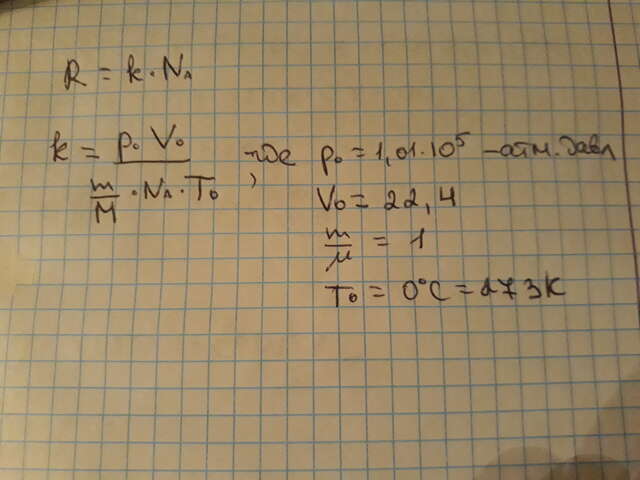 R = k · Nₐ
k = p₀ V₀ / (m/M · Nₐ · T₀) , где p₀ = 1,01·10⁵ – атм. давл
V₀ = 22,4
m/μ = 1
T₀ = 0°C = 273K